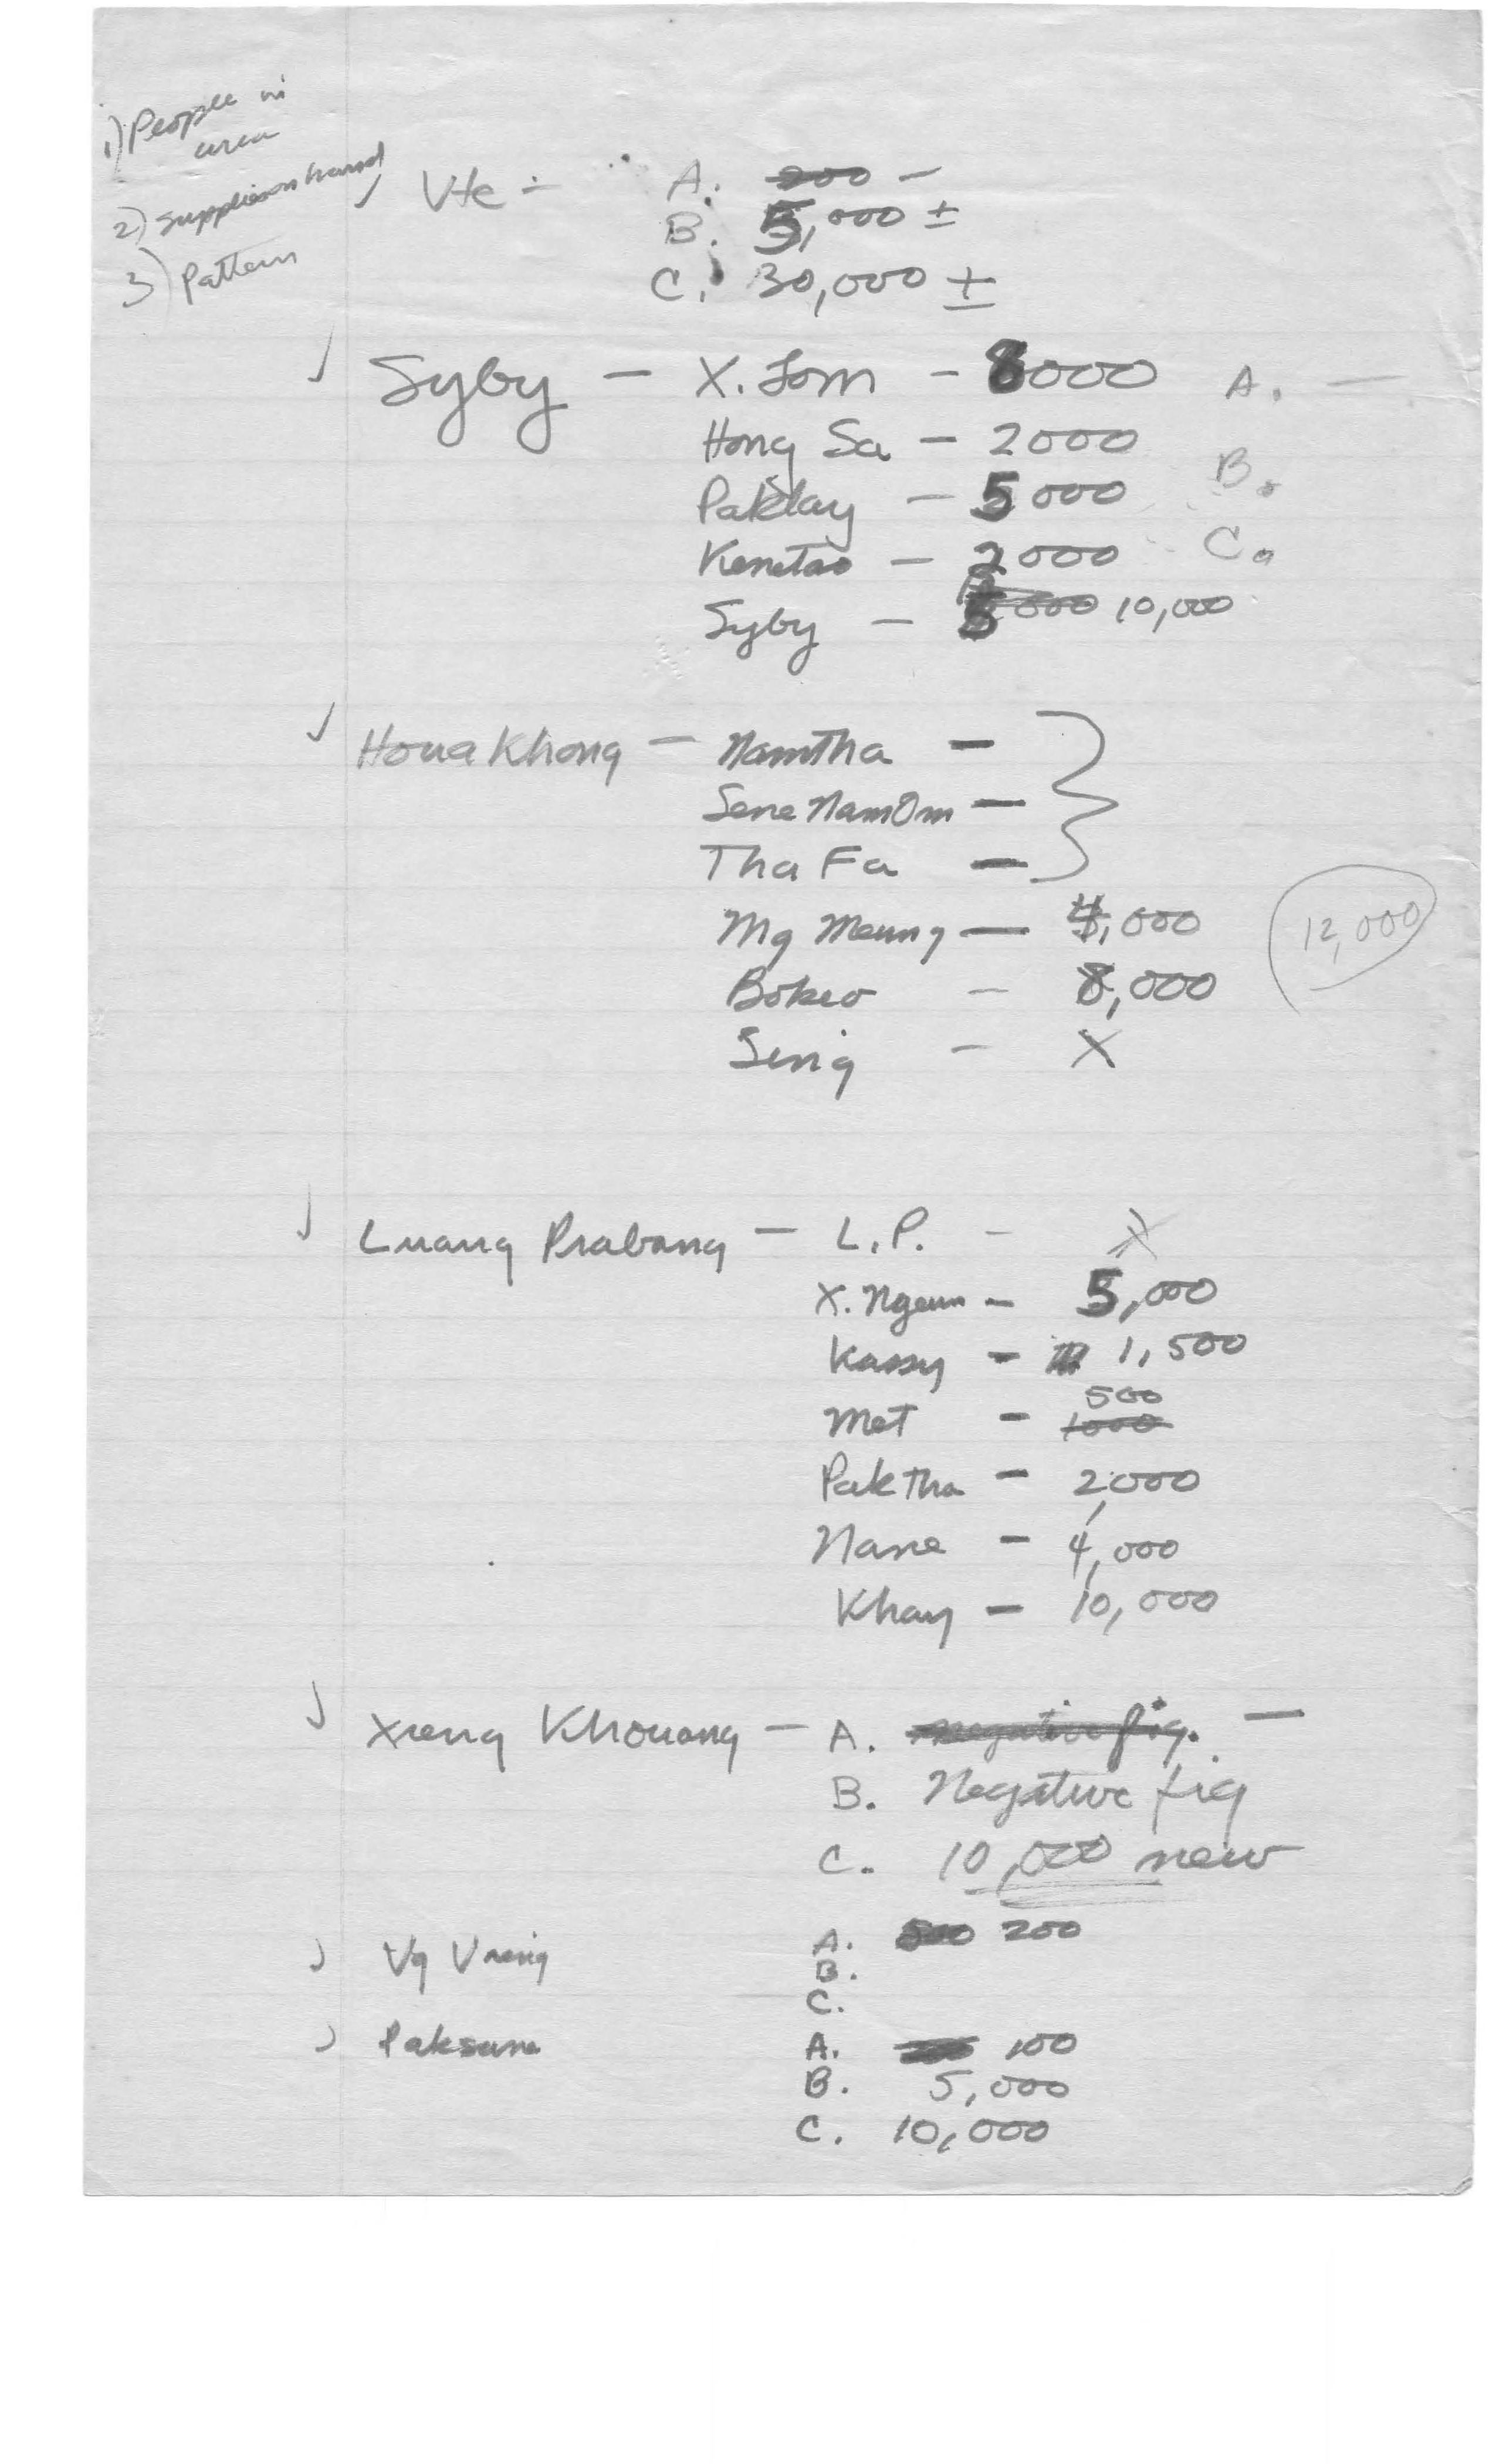 1) People in
area
2) Supplies on hand
3) Pattern
✓ Vte - A. 200 -
B. 5,000 ±
C. 30,000 ±
✓ Syby - X. Lom - 8000 A. -
Hong Sa - 2000
B.
Paklay - 5000
Kenetao - 2000 C.
Syby - 5000 10,000
✓ Houa Khong - Namtha -
Sene Nam Om -
Tha Fa -
Mg Meung - 4,000 12,000
Bokeo - 8,000
Sing - X
✓ Luang Prabang - L.P. - X
X. Ngeun - 5,000
Kassy - 1,500
500
Met - 1000
Pak Tha - 2,000
Nane - 4,000
Khay - 10,000
✓ Xieng Khouang - A. negative fig. -
B. Negative fig
C. 10,000 new
✓ Vg Vieng A. 500 200
B.
C.
✓ Paksane A. 100
B. 5,000
C. 10,000